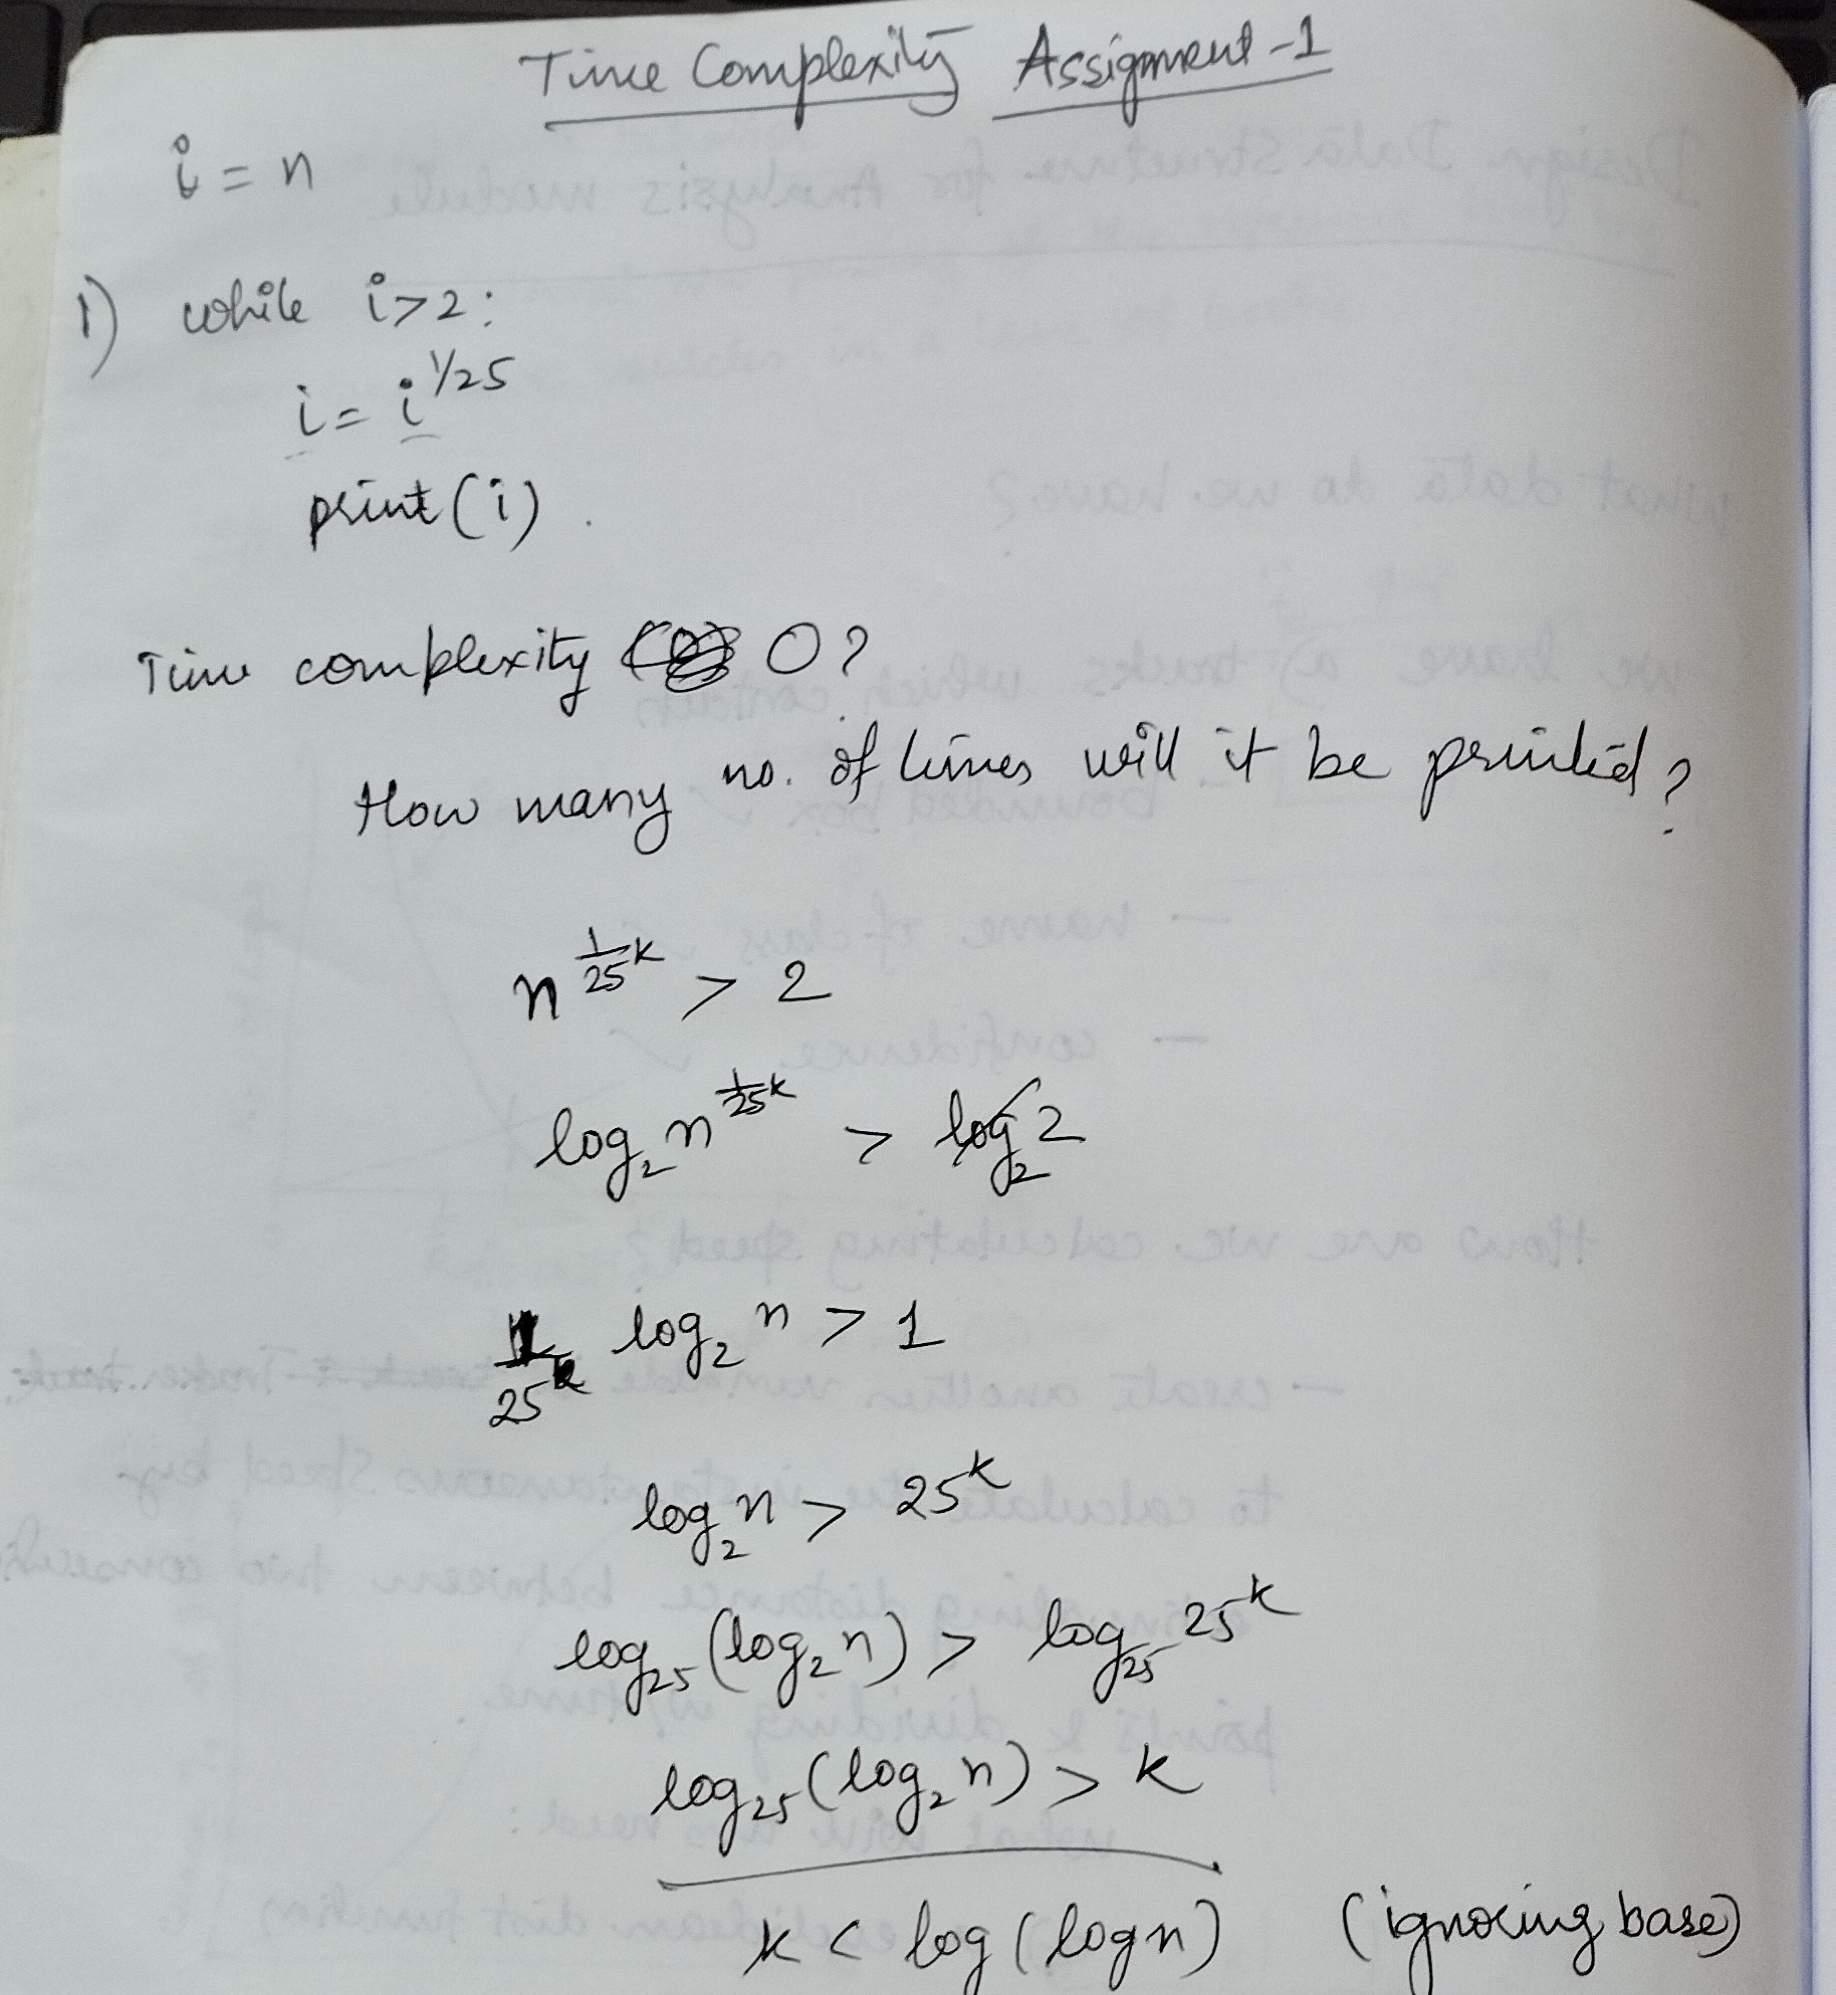 Time Complexity Assignment-1
i = n
1) while i>2:
i = i^1/25
print(i)
Time complexity O?
How many no. of times will it be printed?
n^(1/25^k) > 2
log₂ n^(1/25^k) > log₂ 2
1/25^k log₂ n > 1
log₂ n > 25^k
log₂₅ (log₂ n) > log₂₅ 25^k
log₂₅ (log₂ n) > k
k < log (log n) (ignoring base)